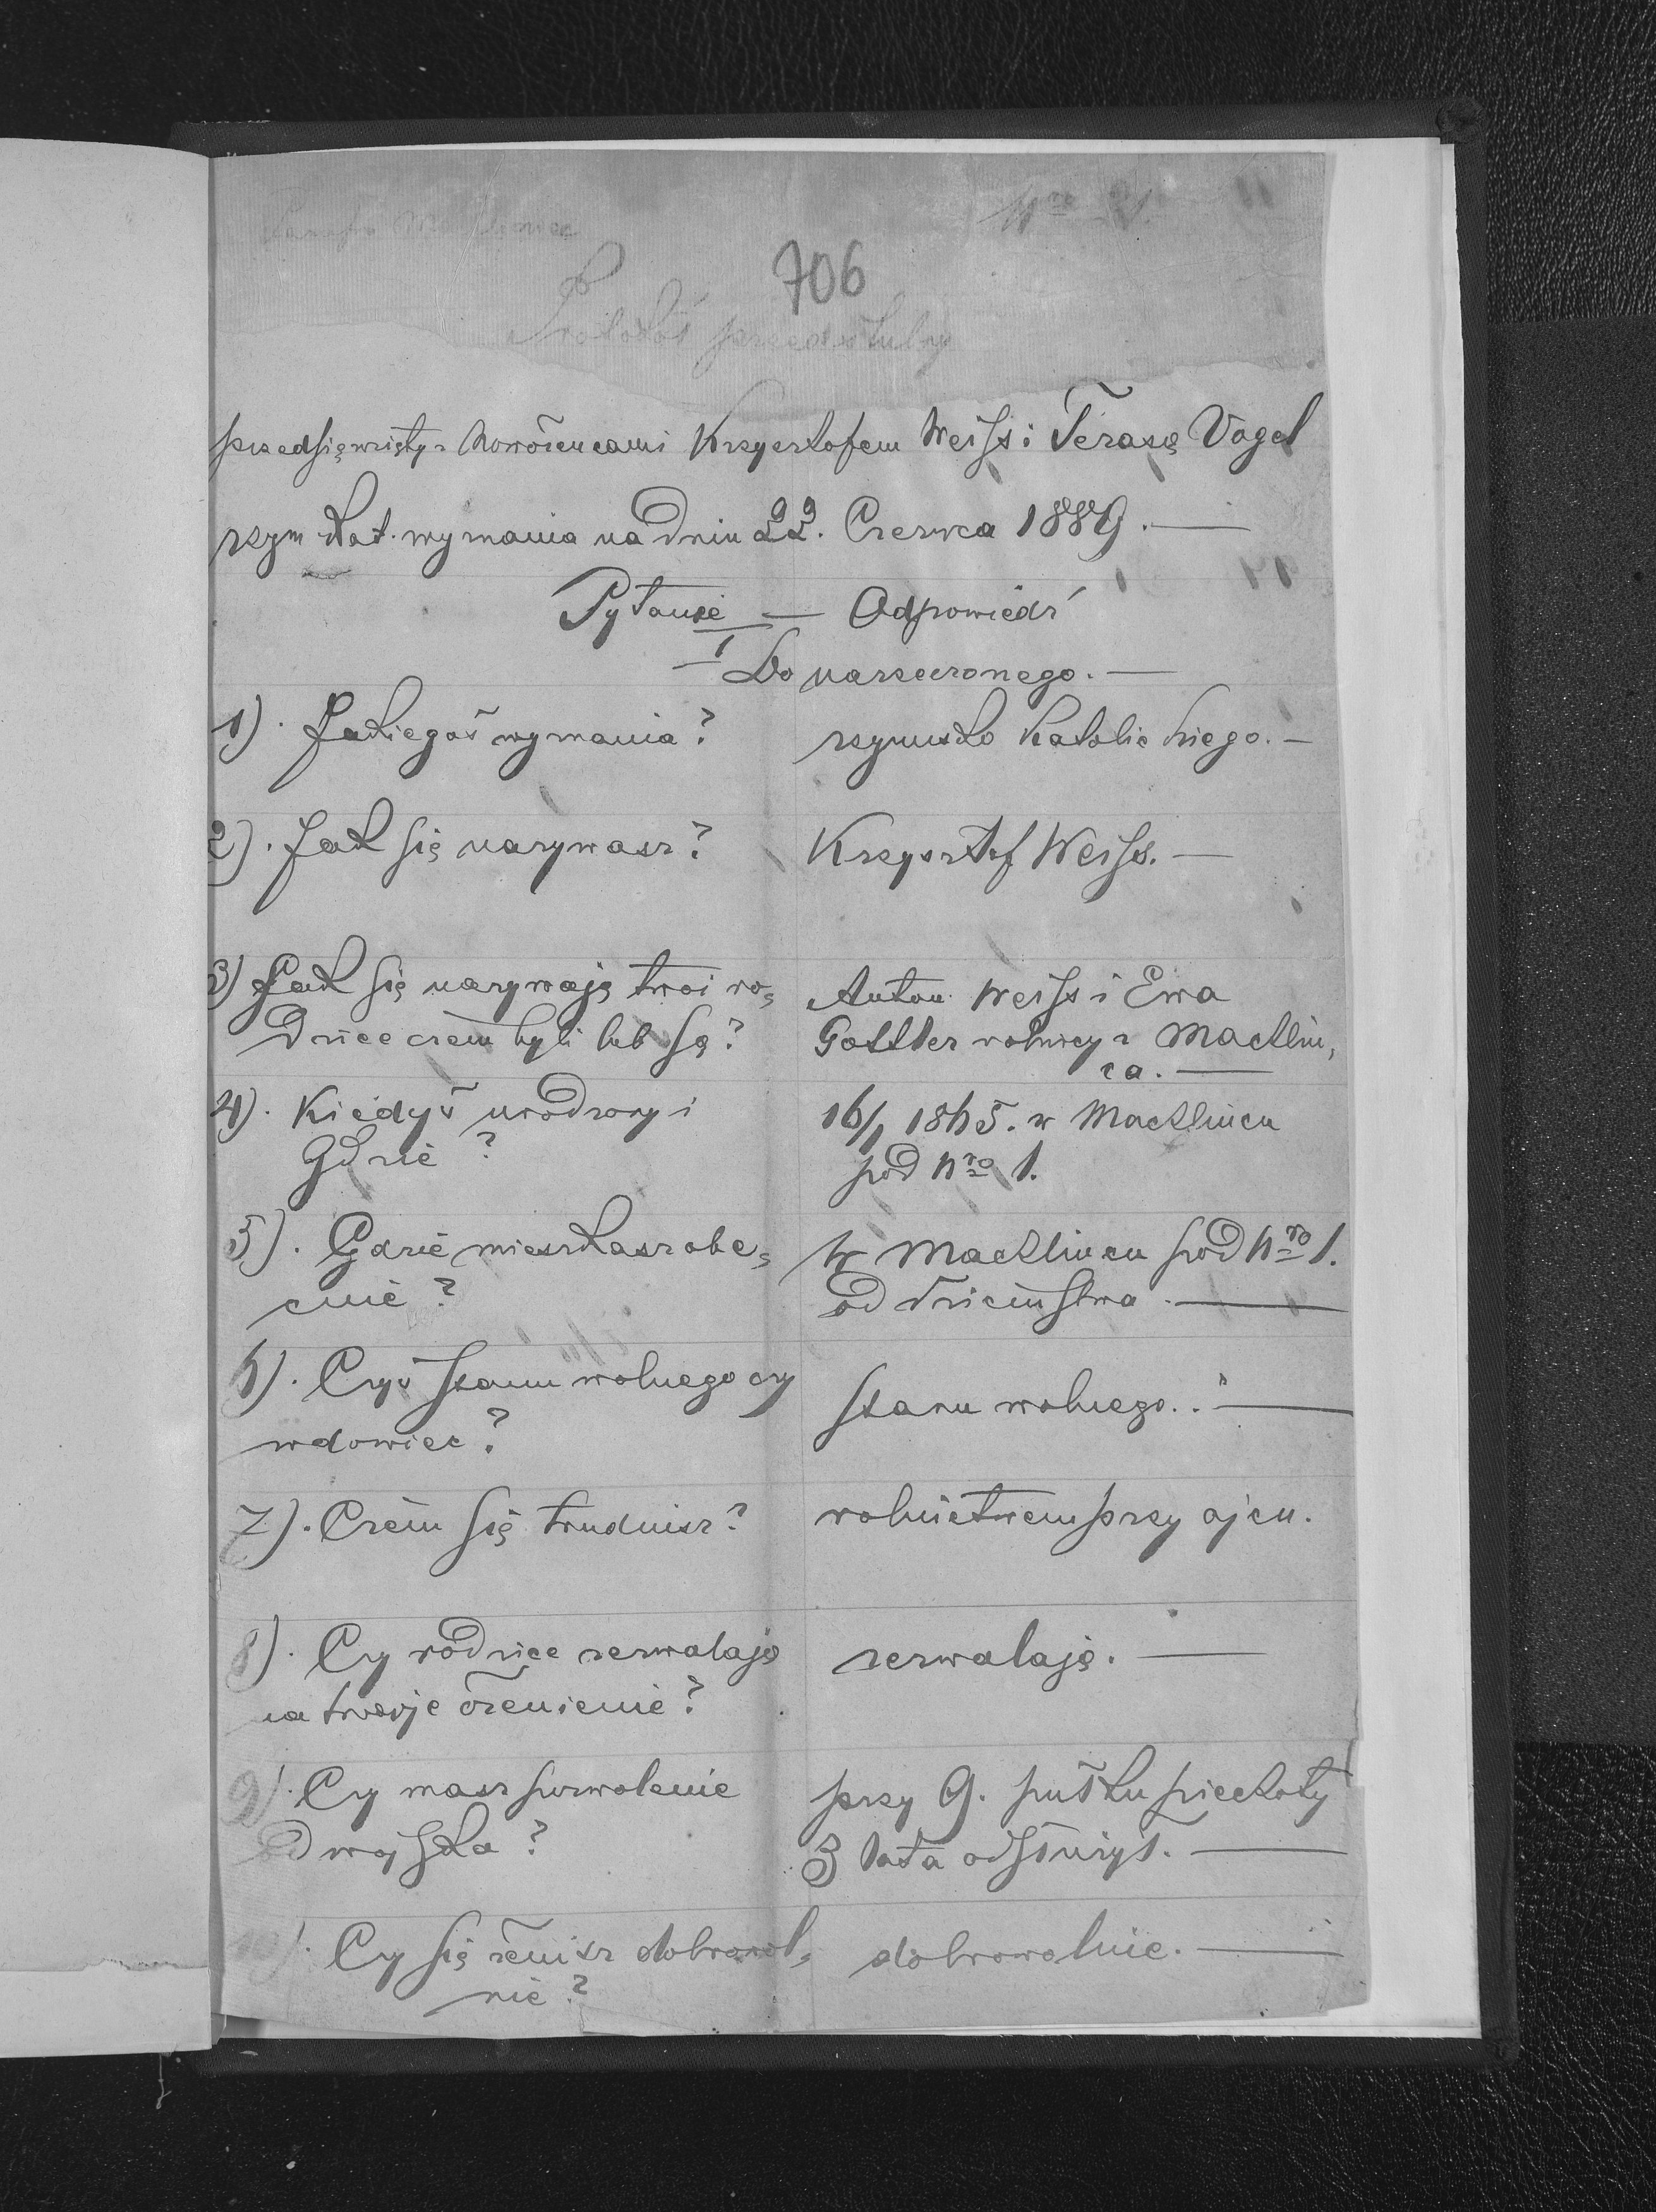 Nro
706
Protokół przedślubny
przedsięwzięty z Nowożeńcami Krzysztofem Weiss i Terasą Vogel
rzym. kat. wyznania na dniu 22. Czerwca 1889.
Pytanie — Odpowiedź
Do narzeczonego. —
1). Jakiegoś wyznania? rzymsko katolickiego. —
2). Jak się nazywasz? Krzysztof Weiss. —
3) Jak się nazywają twoi ro- Anton Weiss i Ewa
dzice czem byli lub są? Gottler rolnicy z Macklin,
ca. —
4). Kiedyś urodzony i 16/1 1865. w Macklincu
Gdzie? pod Nro 1.
5). Gdzie mieszkasz obe- w Macklincu pod Nro 1.
cnie? od dzieciństwa. —
6). Czyś stanu wolnego czy stanu wolnego. —
wdowiec?
7). Czem się trudnisz? rolnictwem przy ojcu.
8). Czy rodzice zezwalają zezwalają. —
na twoje ożenienie?
9). Czy masz pozwolenie przy 9. pułku piechoty
od wojska? 3 lata odsłużył. —
10). Czy się żenisz dobrowol- dobrowolnie. —
nie?